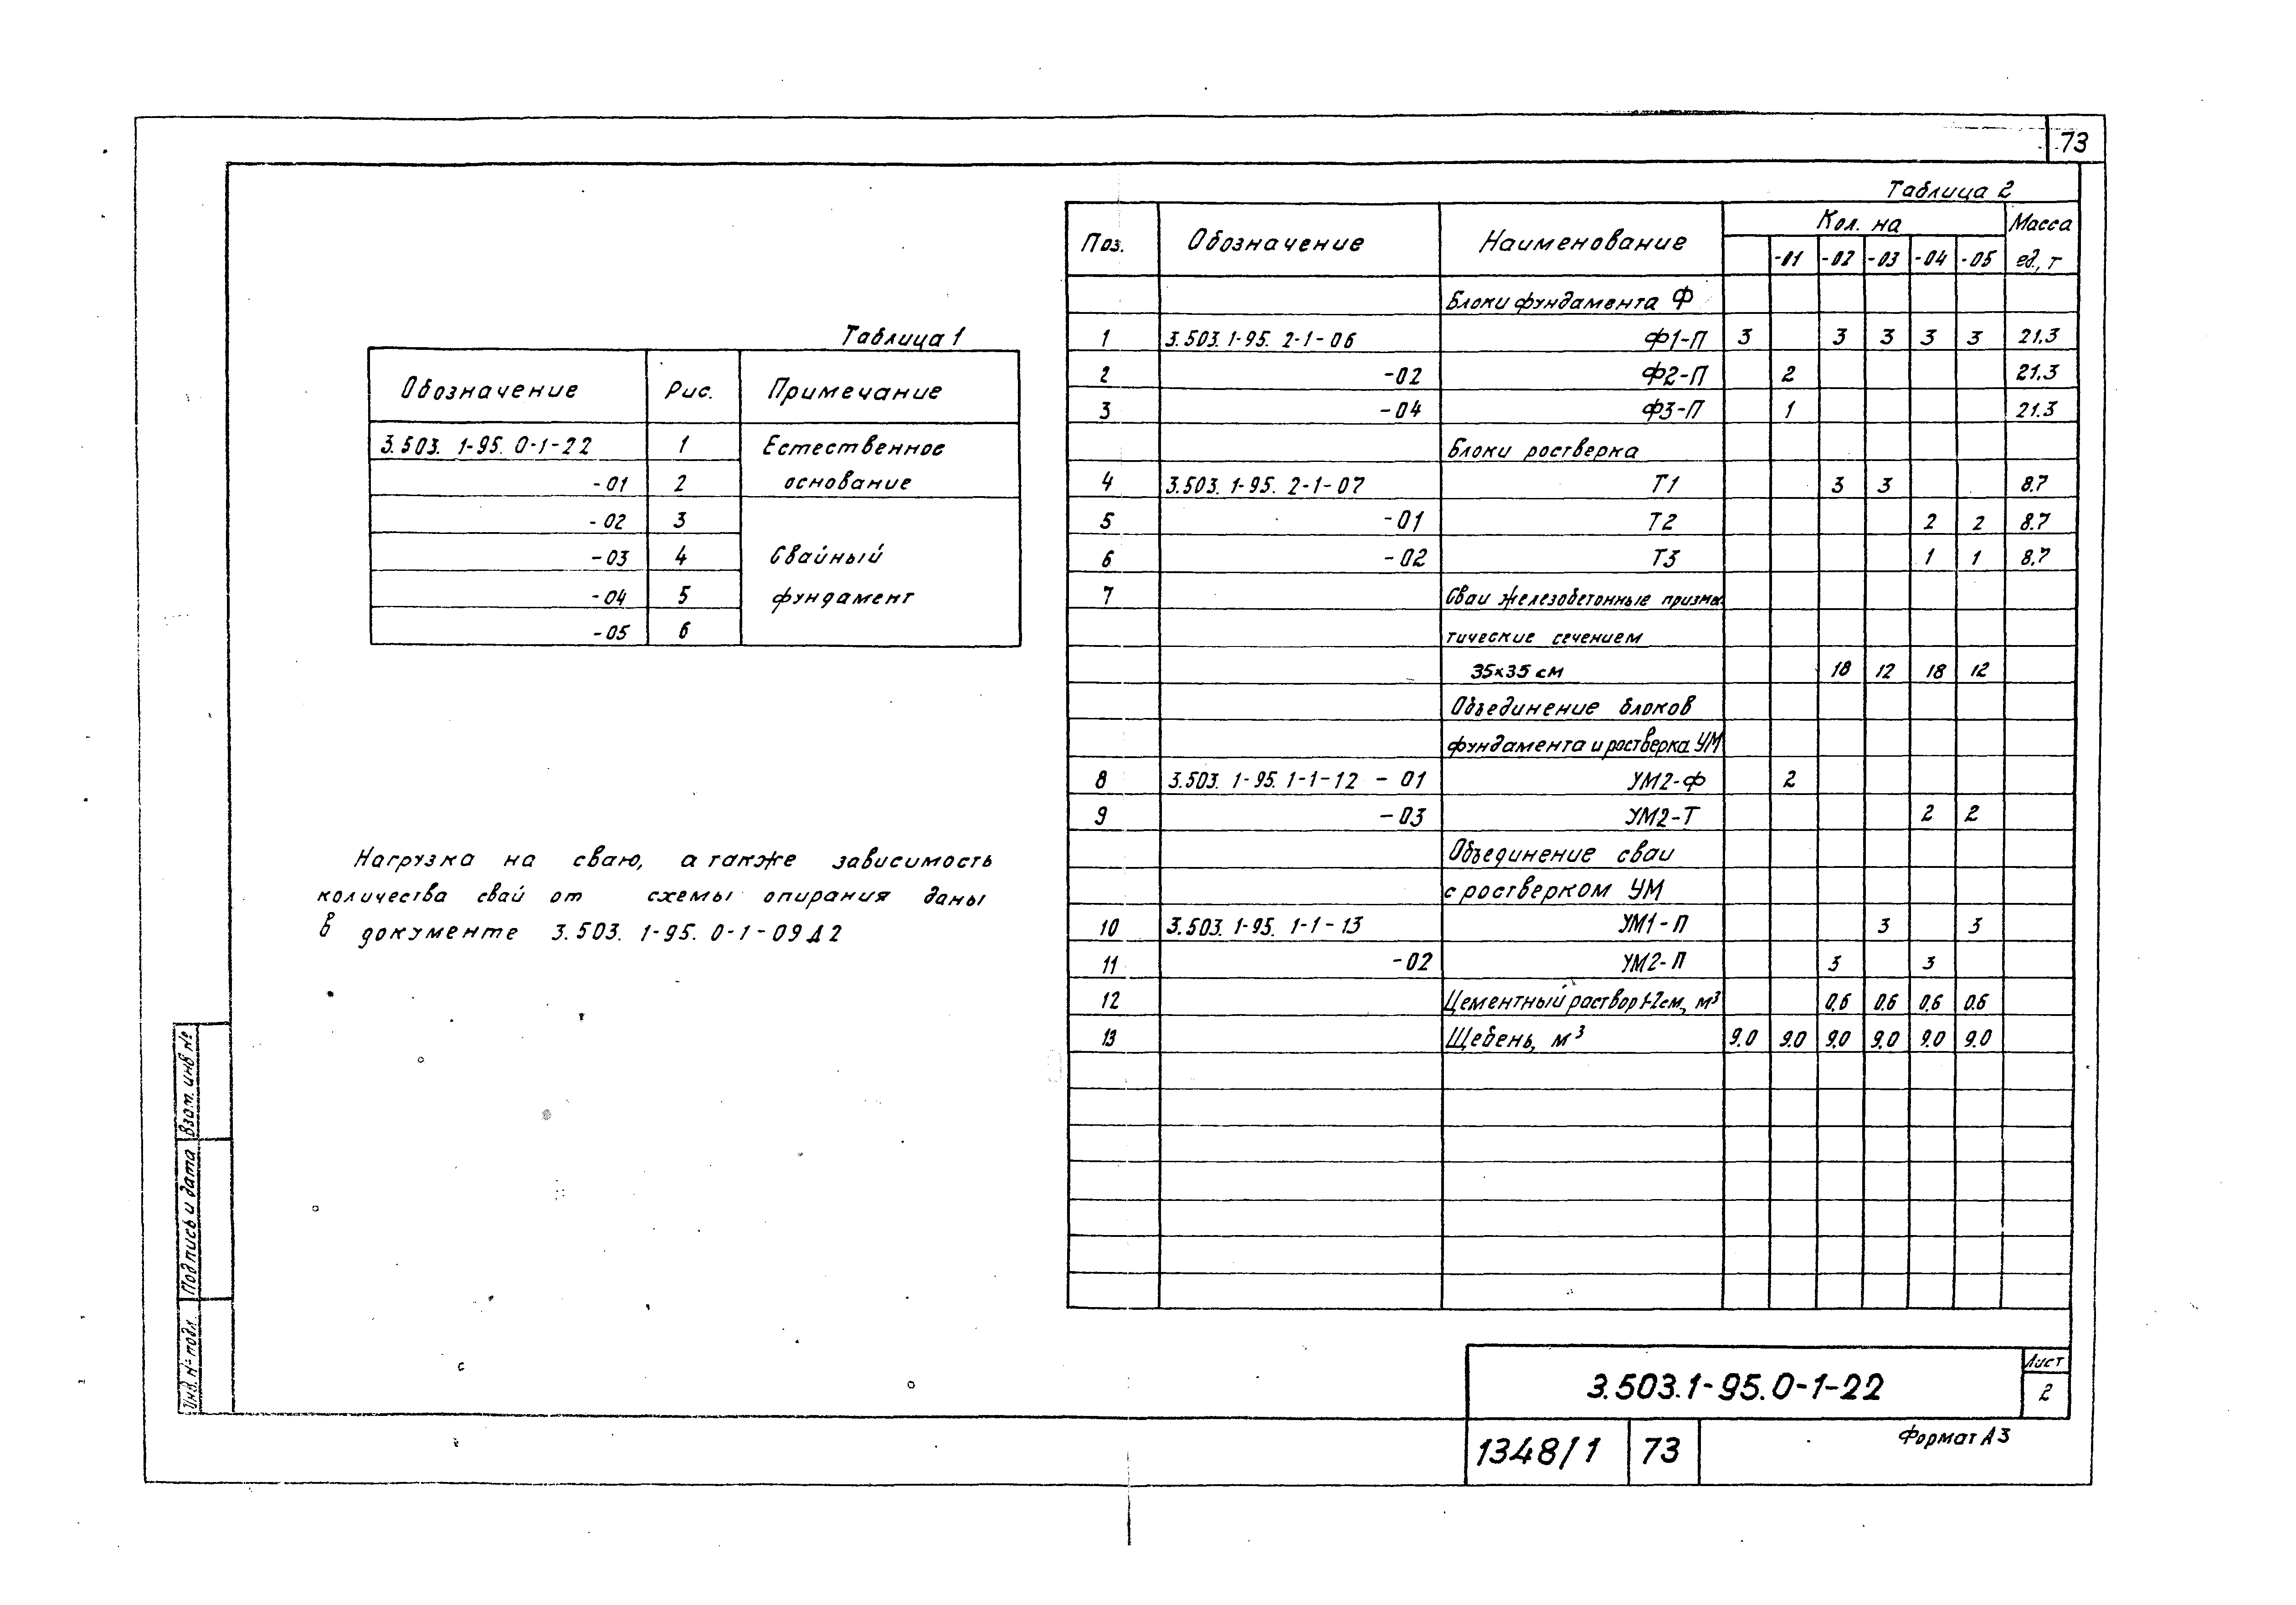 73
Таблица 1
Обозначение Рис. Примечание
3.503. 1-95. 0-1-22 1 Естественное
-01 2 основание
-02 3
-03 4 Свайный
-04 5 фундамент
-05 6
Нагрузка на сваю, а также зависимость
количества свай от схемы опирания даны
в документе 3.503. 1-95. 0-1-09Д2
Таблица 2
Поз. Обозначение Наименование Кол. на Масса
-01 -02 -03 -04 -05 ед., т
Блоки фундамента Ф
1 3.503. 1-95. 2-1-06 Ф1-П 3 3 3 3 3 21.3
2 -02 Ф2-П 2 21.3
3 -04 Ф3-П 1 21.3
Блоки ростверка
4 3.503. 1-95. 2-1-07 Т1 3 3 8.7
5 -01 Т2 2 2 8.7
6 -02 Т3 1 1 8.7
7 Сваи железобетонные призма-
тические сечением
35х35 см 18 12 18 12
Объединение блоков
фундамента и ростверка УМ
8 3.503. 1-95. 1-1-12 -01 УМ2-Ф 2
9 -03 УМ2-Т 2 2
Объединение сваи
с ростверком УМ
10 3.503. 1-95. 1-1-13 УМ1-П 3 3
11 -02 УМ2-П 3 3
12 Цементный раствор 1-2см, м³ 0.6 0.6 0.6 0.6
13 Щебень, м³ 9.0 9.0 9.0 9.0 9.0 9.0
Взам. инв №
Подпись и дата
Инв. № подл.
3.503.1-95.0-1-22
Лист
2
1348/1 73
Формат А3